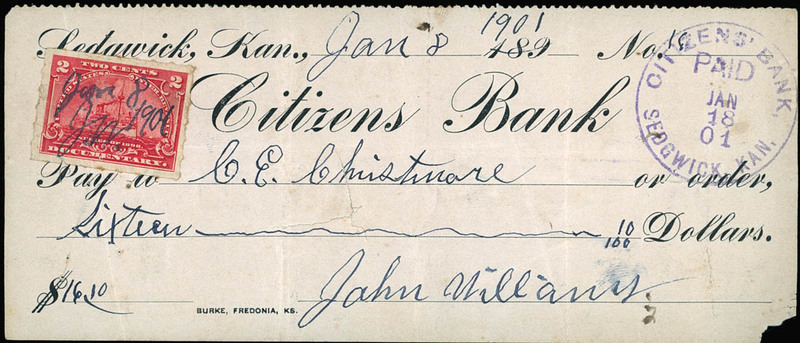 1901
Sedgwick, Kan., Jan 8 189 No.
Citizens Bank
Pay to C. E. Christmore or order,
Sixteen 10/100 Dollars.
$16.10 John Williams
BURKE, FREDONIA, KS.
2 TWO CENTS 2
Jan 8 1901
J.W.
DOCUMENTARY.
CITIZENS' BANK,
PAID
JAN
18
01
SEDGWICK, KAN.